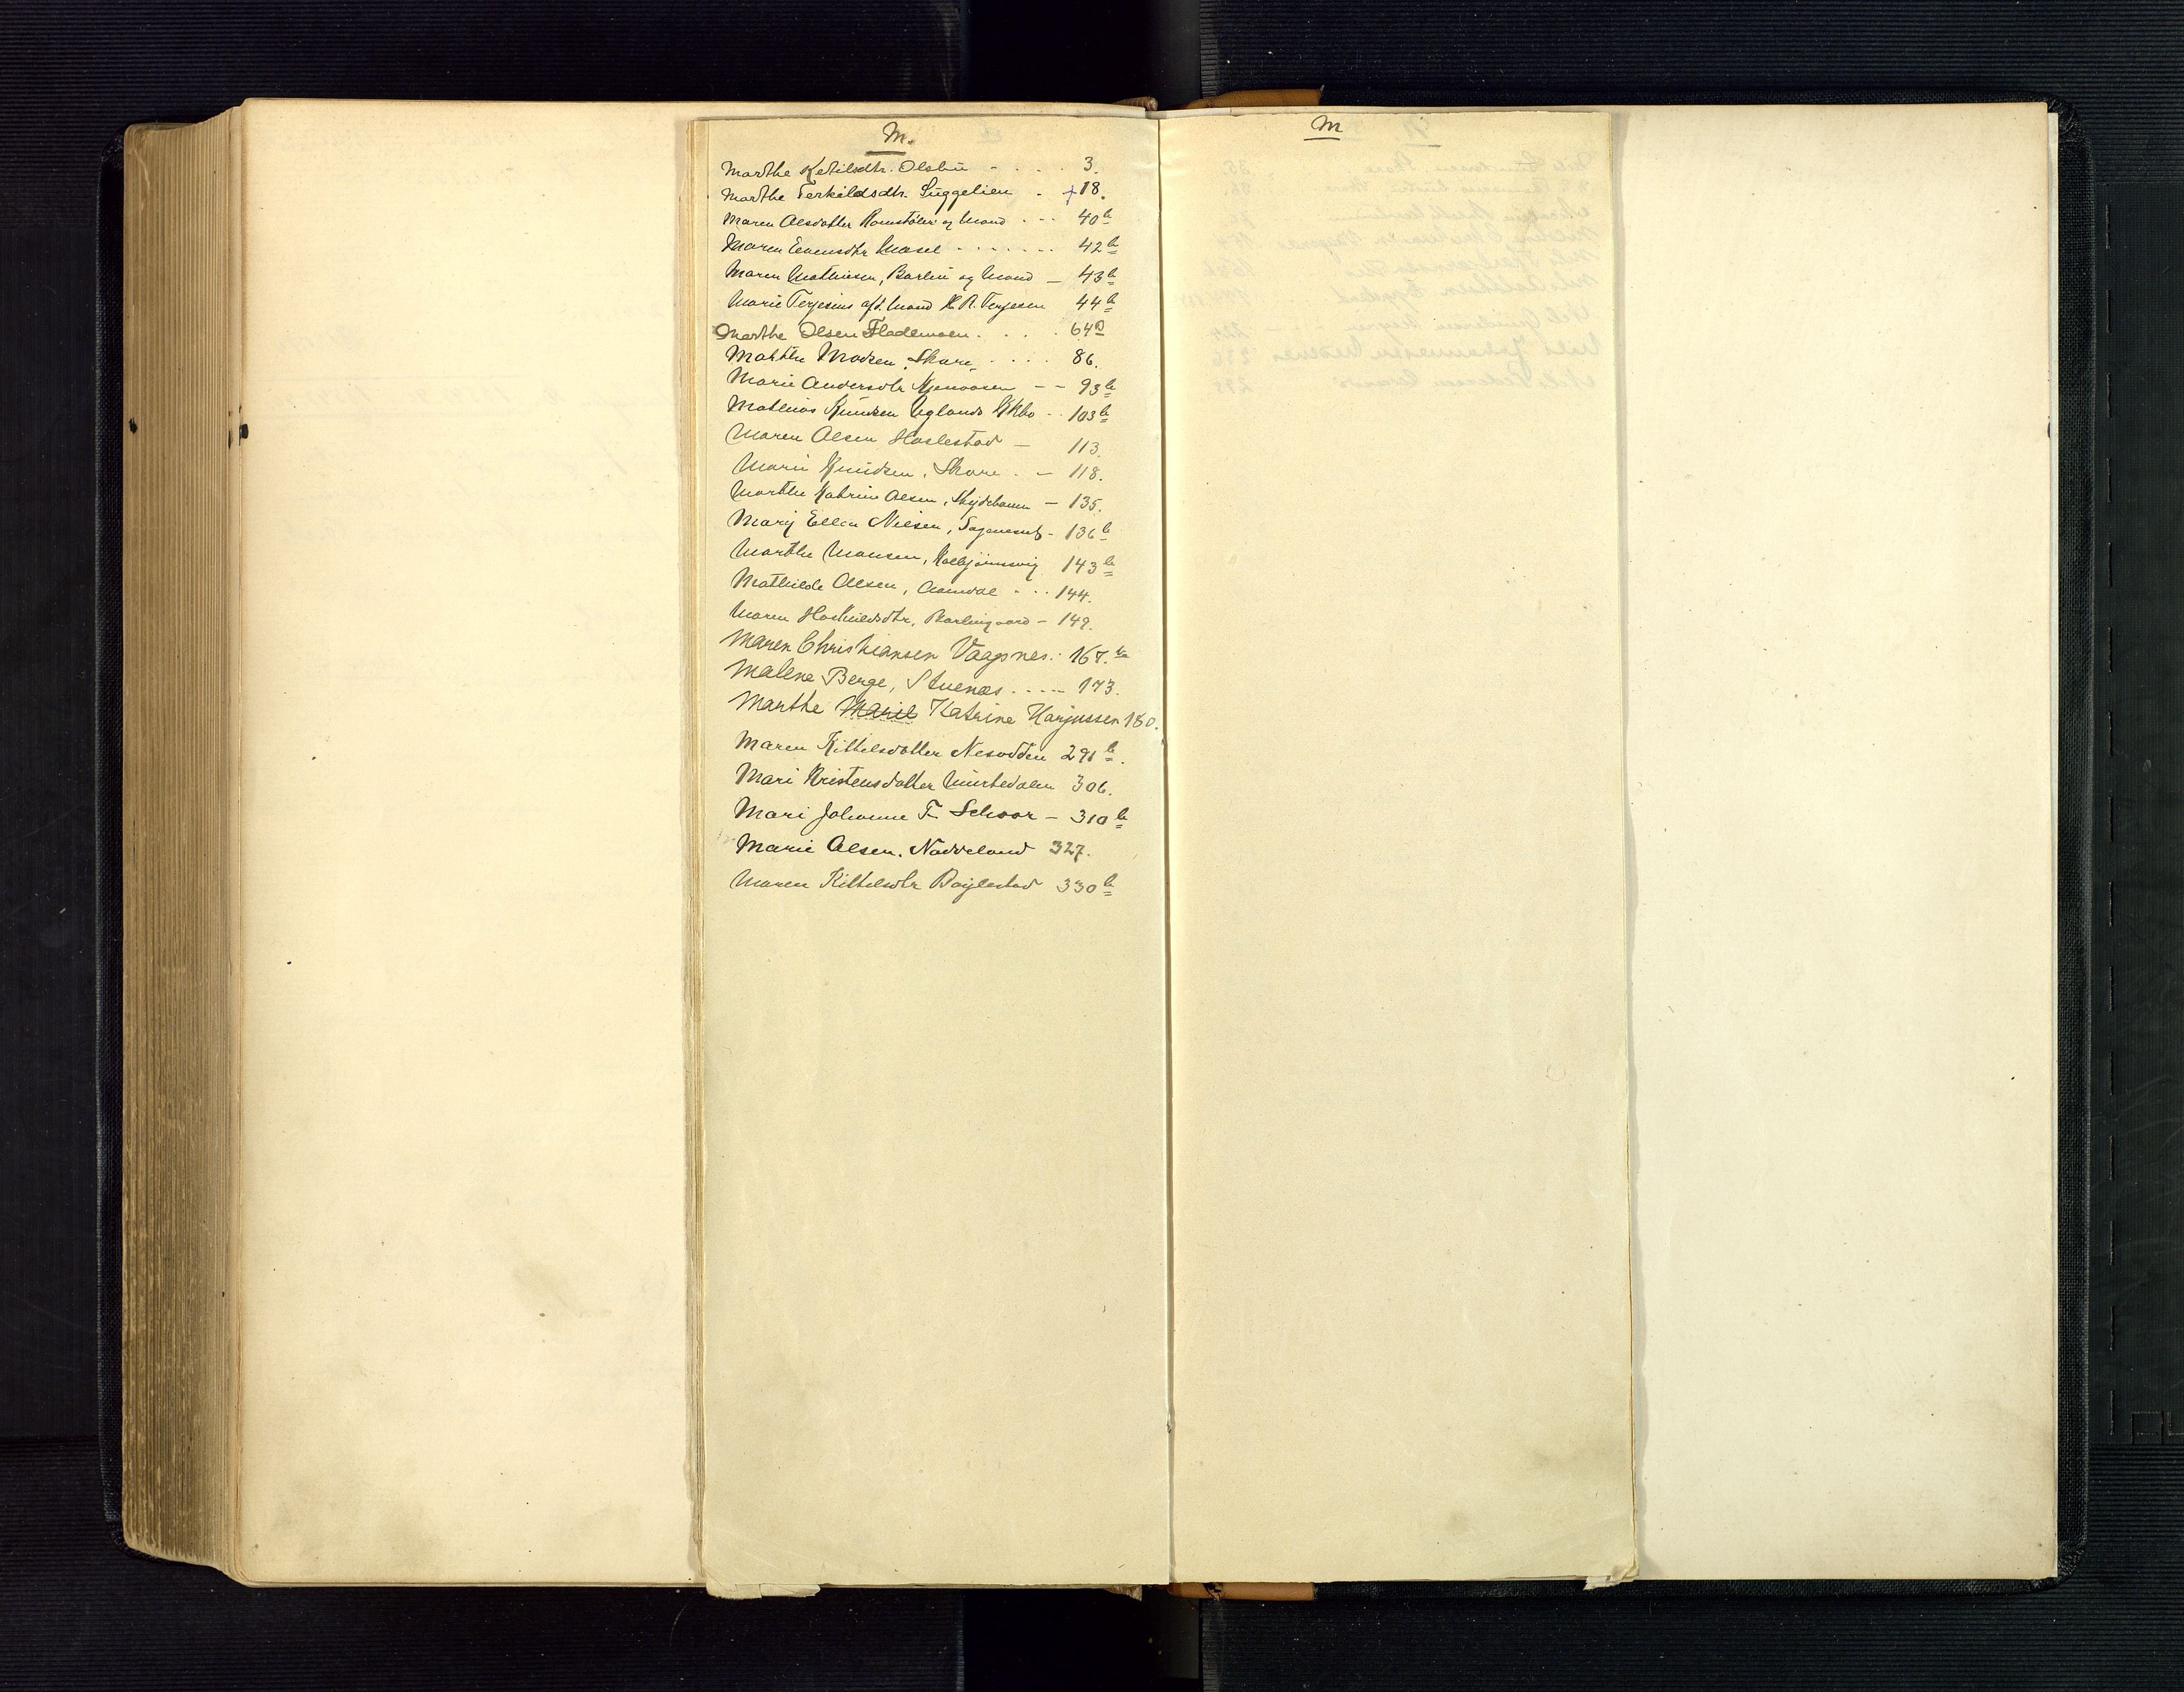 M.
Marthe Ketilsdtr. Olsbu - . . . 3.
Marthe Terkildsdtr. Suggelien . +18.
Maren Olsdatter Ramstølen og Mand - - - 40b
Maren Evensdtr Mosel - - - - - - - 42b
Maren Mathisen, Barlin og Mand - 43b
Marie Terjesens afd. Mand K R. Terjesen 44b
Marthe Olsen Flademoen . . . . 64a
Marthe Madsen, Skare, - . . . 86.
Marie Andersdtr - - 93b
Mathias Knudsen Uglands Ekbo - - 103b
Maren Olsen Haslestad - 113.
Marie Knudsen, Skare . - 118.
Marthe Katrine Olsen, - 135.
Mary Ellen Nilsen, - 136b
Marthe Monsen, Kolbjørnsvig 143b
Mathilde Olsen, Aamdal - - - 144.
Maren, Barlingaard - 149.
Maren Christiansen Vaagsnes. : 167.b
Malene Berge, Stuenæs . - - - - 173.
Marthe Marie Katrine Harjussen 180.
Maren Kittelsdatter Nesodden 291b.
Mari Kristensdatter 306.
Mari Johanne F. Schoor - 310b
Marie Olsen. Nævdeland 327.
Maren Kittelsdtr Bøylestad 330b
M